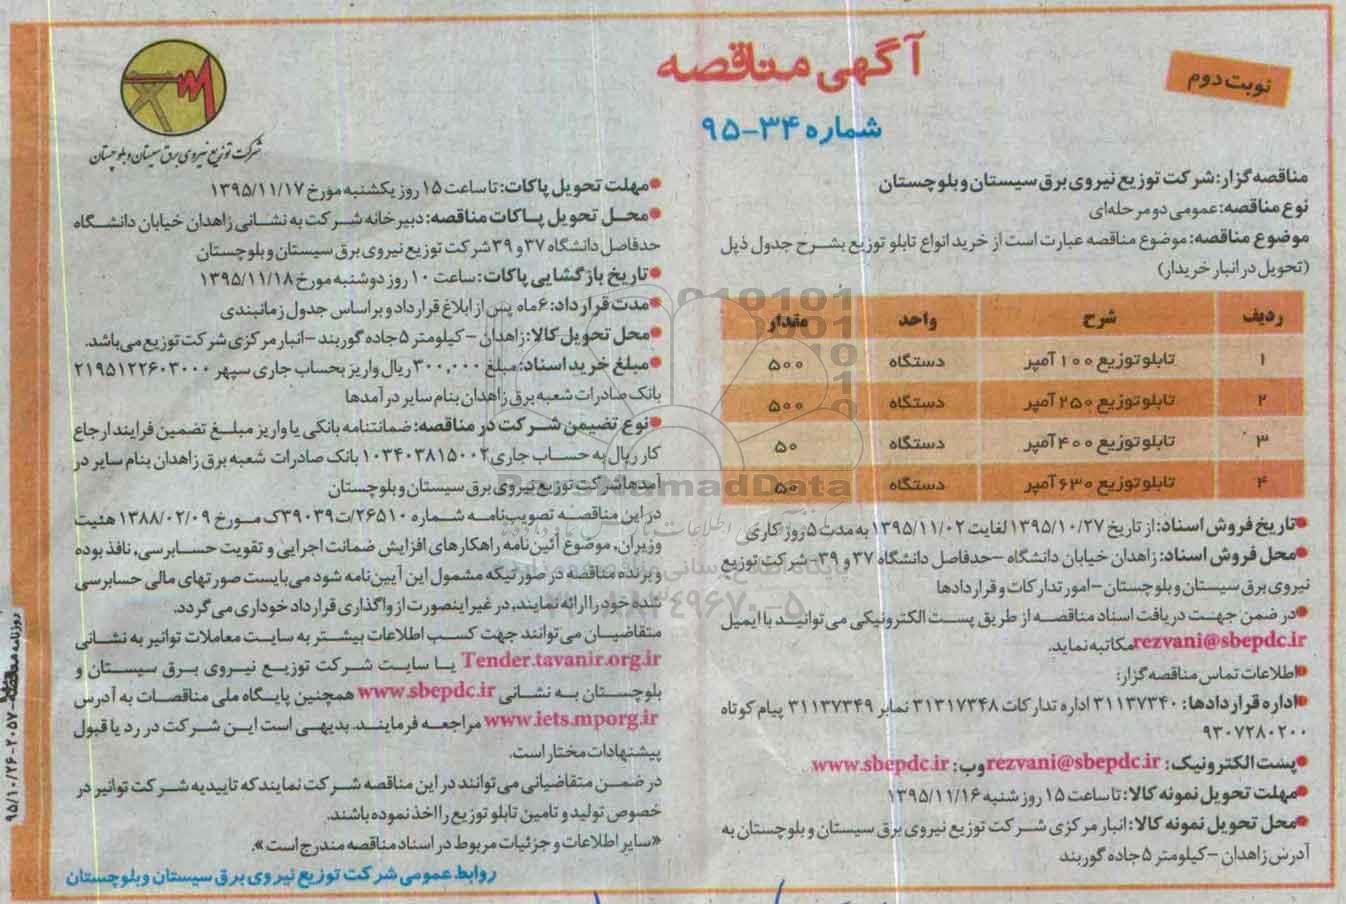 نوبت دوم
آگهی مناقصه
شماره ۳۴-۹۵
مناقصه گزار: شرکت توزیع نیروی برق سیستان و بلوچستان
نوع مناقصه: عمومی دو مرحله‌ای
موضوع مناقصه: موضوع مناقصه عبارت است از خرید انواع تابلو توزیع بشرح جدول ذیل
(تحویل در انبار خریدار)
ردیف شرح واحد مقدار
۱ تابلو توزیع ۱۰۰ آمپر دستگاه ۵۰۰
۲ تابلو توزیع ۲۵۰ آمپر دستگاه ۵۰۰
۳ تابلو توزیع ۴۰۰ آمپر دستگاه ۵۰
۴ تابلو توزیع ۶۳۰ آمپر دستگاه ۵۰
●تاریخ فروش اسناد: از تاریخ ۱۳۹۵/۱۰/۲۷ لغایت ۱۳۹۵/۱۱/۰۲ به مدت ۵ روز کاری
●محل فروش اسناد: زاهدان خیابان دانشگاه - حدفاصل دانشگاه ۳۷ و ۳۹ - شرکت توزیع
نیروی برق سیستان و بلوچستان - امور تدارکات و قراردادها
●در ضمن جهت دریافت اسناد مناقصه از طریق پست الکترونیکی می‌توانید با ایمیل
rezvani@sbepdc.ir مکاتبه نماید.
●اطلاعات تماس مناقصه گزار:
●اداره قراردادها: ۳۱۱۳۷۳۴۰ اداره تدارکات ۳۱۳۱۷۳۴۸ نمابر ۳۱۱۳۷۳۴۹ پیام کوتاه
۹۳۰۷۲۸۰۲۰۰
●پست الکترونیک: rezvani@sbepdc.ir وب: www.sbepdc.ir
●مهلت تحویل نمونه کالا: تا ساعت ۱۵ روز شنبه ۱۳۹۵/۱۱/۱۶
●محل تحویل نمونه کالا: انبار مرکزی شرکت توزیع نیروی برق سیستان و بلوچستان به
آدرس زاهدان - کیلومتر ۵ جاده گوربند
شرکت توزیع نیروی برق سیستان و بلوچستان
●مهلت تحویل پاکات: تا ساعت ۱۵ روز یکشنبه مورخ ۱۳۹۵/۱۱/۱۷
●محل تحویل پاکات مناقصه: دبیرخانه شرکت به نشانی زاهدان خیابان دانشگاه
حدفاصل دانشگاه ۳۷ و ۳۹ شرکت توزیع نیروی برق سیستان و بلوچستان
●تاریخ بازگشایی پاکات: ساعت ۱۰ روز دوشنبه مورخ ۱۳۹۵/۱۱/۱۸
●مدت قرارداد: ۶ ماه پس از ابلاغ قرارداد و براساس جدول زمانبندی
●محل تحویل کالا: زاهدان - کیلومتر ۵ جاده گوربند - انبار مرکزی شرکت توزیع می‌باشد.
●مبلغ خرید اسناد: مبلغ ۳۰۰,۰۰۰ ریال واریز بحساب جاری سپهر ۲۱۹۵۱۲۲۶۰۳۰۰۰
بانک صادرات شعبه برق زاهدان بنام سایر درآمدها
●نوع تضیمن شرکت در مناقصه: ضمانتنامه بانکی یا واریز مبلغ تضمین فرایند ارجاع
کار ریال به حساب جاری ۱۰۳۴۰۳۸۱۵۰۰۲ بانک صادرات شعبه برق زاهدان بنام سایر در
آمدها شرکت توزیع نیروی برق سیستان و بلوچستان
در این مناقصه تصویب‌نامه شماره ۲۶۵۱۰/ت۳۹۰۳۹ک مورخ ۱۳۸۸/۰۲/۰۹ هئیت
وزیران، موضوع آئین نامه راهکارهای افزایش ضمانت اجرایی و تقویت حسابرسی، نافذ بوده
و برنده مناقصه در صورتیکه مشمول این آیین‌نامه شود می‌بایست صورتهای مالی حسابرسی
شده خود را ارائه نمایند، در غیر اینصورت از واگذاری قرارداد خوداری می‌گردد.
متقاضیان می‌توانند جهت کسب اطلاعات بیشتر به سایت معاملات توانیر به نشانی
Tender.tavanir.org.ir یا سایت شرکت توزیع نیروی برق سیستان و
بلوچستان به نشانی www.sbepdc.ir همچنین پایگاه ملی مناقصات به آدرس
www.iets.mporg.ir مراجعه فرمایند. بدیهی است این شرکت در رد یا قبول
پیشنهادات مختار است.
در ضمن متقاضیانی می‌توانند در این مناقصه شرکت نمایند که تاییدیه شرکت توانیر در
خصوص تولید و تامین تابلو توزیع را اخذ نموده باشند.
«سایر اطلاعات و جزئیات مربوط در اسناد مناقصه مندرج است».
روابط عمومی شرکت توزیع نیروی برق سیستان و بلوچستان
روزنامه مناقصه - ۲۰۵۷ - ۹۵/۱۰/۲۶